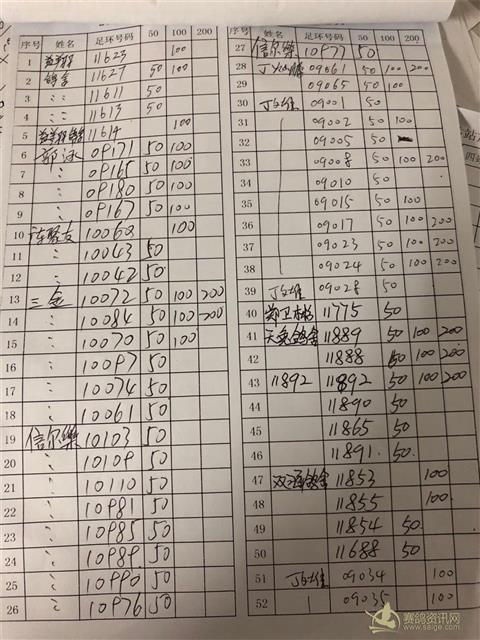 序号 姓名 足环号码 50 100 200
1 11623 100
2 鸽舍 11627 50 100
3 〃 11611 50
4 〃 11613 50
5 11614 100
6 09171 50 100
7 〃 09165 50 100
8 〃 09180 50 100
9 〃 09167 50 100
10 10060 100
11 〃 10043 50
12 〃 10042 50
13 三金 10072 50 100 200
14 〃 10084 50 100 200
15 〃 10070 50 100
16 〃 10097 50
17 〃 10074 50
18 〃 10061 50
19 信尔樂 10103 50
20 〃 10109 50
21 〃 10110 50
22 〃 10981 50
23 〃 10985 50
24 〃 10989 50
25 〃 10990 50
26 〃 10976 50
序号 姓名 足环号码 50 100 200
27 信尔樂 10977 50
28 09061 50 100 200
29 09065 50 100
30 09001 50
31 09002 50 100
32 09005 50
33 09008 50 100 200
34 09010 50
35 09015 50 100
36 09017 50 100 200
37 09023 50 100 200
38 09024 50 100 200
39 09028 50
40 11775 50
41 鸽舍 11889 50 100 200
42 11888 50 100 200
43 11892 11892 50 100 200
44 11890 50
45 11865 50
46 11891 50
47 11853 100
48 11855 100
49 11854 50
50 11688 50
51 09034 100
52 09035 100
赛鸽资讯网
www.saige.com